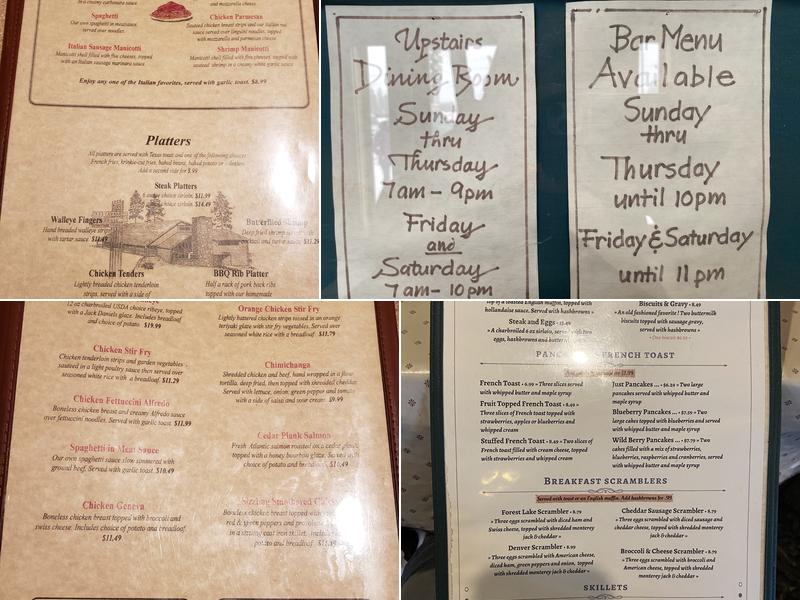 in a creamy carbonara sauce
and mozzarella cheese.
Spaghetti
Our own spaghetti in meatsauce,
served over noodles.
Chicken Parmesan
Sauteed chicken breast strips and our Italian red
sauce served over linguini noodles, topped
with mozzarella and parmesan cheese.
Italian Sausage Manicotti
Manicotti shell filled with five cheeses, topped
with an Italian sausage marinara sauce.
Shrimp Manicotti
Manicotti shell filled with five cheeses, topped with
seafood shrimp in a creamy white garlic sauce
Enjoy any one of the Italian favorites, served with garlic toast. $8.99
Platters
All platters are served with Texas toast and one of the following choices:
French fries, krinkle-cut fries, baked beans, baked potato or
Add a second side for $.99
Steak Platters
6 ounce choice sirloin. $11.99
choice sirloin. $14.49
Walleye Fingers
Hand breaded walleye strips
with tartar sauce $11.49
Butterflied Shrimp
Deep fried shrimp served with
cocktail and tartar sauce $11.29
Chicken Tenders
Lightly breaded chicken tenderloin
strips, served with a side of
BBQ Rib Platter
Half a rack of pork back ribs
topped with our homemade
Upstairs
Dining Room
Sunday
thru
Thursday
7am - 9pm
Friday
and
Saturday
7am - 10pm
Bar Menu
Available
Sunday
thru
Thursday
until 10pm
Friday & Saturday
until 11pm
12 oz charbroiled USDA choice ribeye, topped
with a Jack Daniels glaze. Includes breadloaf
and choice of potato $19.99
Chicken Stir Fry
Chicken tenderloin strips and garden vegetables
sauteed in a light poultry sauce then served over
seasoned white rice with a breadloaf $11.29
Chicken Fettuccini Alfredo
Boneless chicken breast and creamy Alfredo sauce
over fettuccini noodles. Served with garlic toast $11.99
Spaghetti in Meat Sauce
Our own spaghetti sauce slow simmered with
ground beef. Served with garlic toast $10.49
Chicken Geneva
Boneless chicken breast topped with broccoli and
swiss cheese. Includes choice of potato and breadloaf.
$11.49
Orange Chicken Stir Fry
Lightly battered chicken strips tossed in an orange
teriyaki glaze with stir fry vegetables. Served over
seasoned white rice with a breadloaf. $11.79
Chimichanga
Shredded chicken and beef, hand wrapped in a flour
tortilla, deep fried, then topped with shredded cheddar.
Served with lettuce, onion, green pepper and tomato
with a side of salsa and sour cream $9.99
Cedar Plank Salmon
Fresh Atlantic salmon roasted on a cedar plank
topped with a honey bourbon glaze. Served with
choice of potato and breadloaf.
Sizzling Smothered
Boneless chicken breast topped with
red & green peppers and
in a sizzling cast iron skillet. Includes
potato and breadloaf
top of a toasted English muffin, topped with
hollandaise sauce. Served with
Steak and Eggs • 15.49
» A charbroiled 6 oz sirloin, served with two
eggs, hashbrowns and
Biscuits & Gravy • 8.49
» An old fashioned favorite! Two buttermilk
biscuits topped with sausage gravy,
served with hashbrowns »
• One biscuit
FRENCH TOAST
French Toast • 6.99 » Three slices served
with whipped butter and maple syrup
Fruit Topped French Toast • 8.49 »
Three slices of French toast topped with
strawberries, apples or blueberries and
whipped cream
Stuffed French Toast • 8.49 » Two slices of
French toast filled with cream cheese, topped
with strawberries and whipped cream
Just Pancakes ... • $6.59 » Two large
pancakes served with whipped butter and
maple syrup
Blueberry Pancakes ... • $7.59 » Two
large cakes topped with blueberries and served
with whipped butter and maple syrup
Wild Berry Pancakes ... • $7.79 » Two
cakes filled with a mix of strawberries,
blueberries, raspberries and cranberries, served
with whipped butter and maple syrup
BREAKFAST SCRAMBLERS
Served with toast or an English muffin. Add hashbrowns for .99
Forest Lake Scrambler • 8.79
» Three eggs scrambled with diced ham and
Swiss cheese, topped with shredded monterey
jack & cheddar »
Denver Scrambler • 8.99
» Three eggs scrambled with American cheese,
diced ham, green peppers and onion, topped
with shredded monterey jack & cheddar »
Cheddar Sausage Scrambler • 8.79
» Three eggs scrambled with diced sausage and
cheddar cheese, topped with shredded monterey
jack & cheddar »
Broccoli & Cheese Scrambler • 8.79
» Three eggs scrambled with broccoli and
American cheese, topped with shredded
monterey jack & cheddar »
SKILLETS